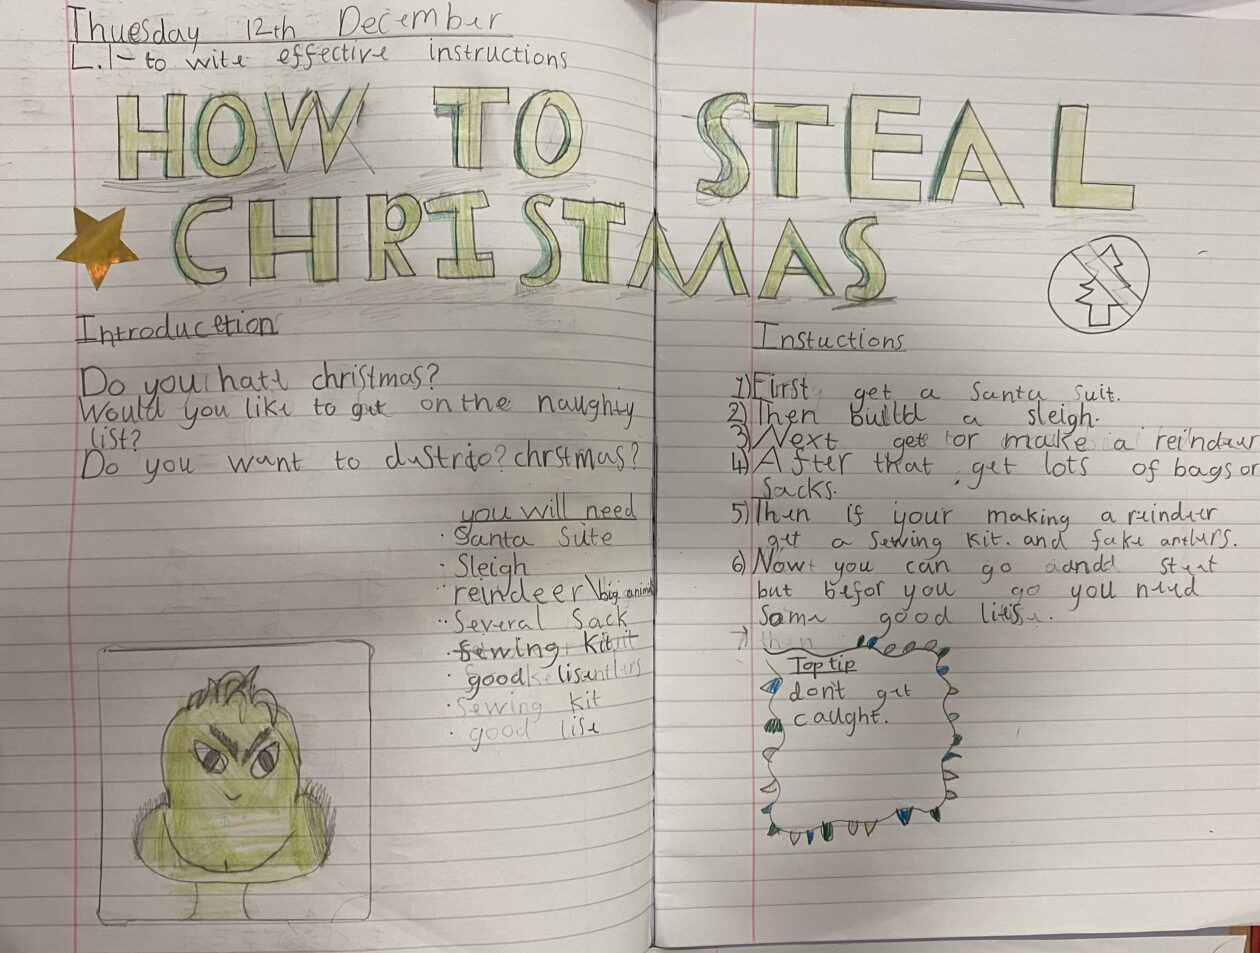 Thuesday 12th December
L.I - to wite effective instructions
HOW TO STEAL
CHRISTMAS
Introducetion
Do you hate christmas?
Would you like to get on the naughty
list?
Do you want to dustrio? chrstmas?
you will need
· Santa suite
· Sleigh
· reindeer\big anima
· Several Sack
· sewing kit
· good lis
· Sewing kit
· good lise
Instuctions
1) First get a Santa suit.
2) Then build a sleigh.
3) Next get or make a reindeer
4) After that, get lots of bags or
Sacks.
5) Then if your making a reindeer
get a sewing kit. and fake antlers.
6) Now you can go
but befor you go you need
some good
7) then
Top tip
don't get
caught.